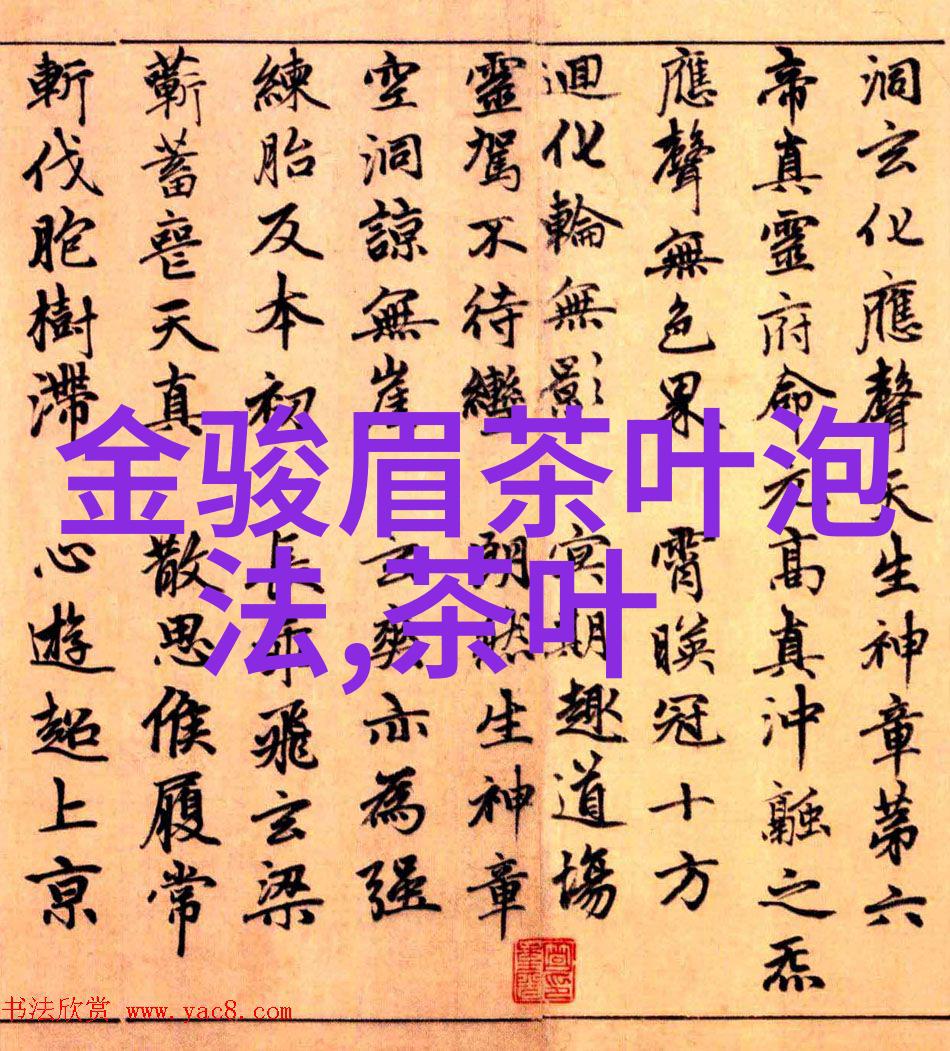 洞玄化應聲天生神章第六
帝真靈府命元高真沖融之炁
應聲無色界 霄暎冠十方
迴化輪無影 冥期趣道場
靈駕不待轡 朗然生神章
空洞諒無崖 玄爽亦為強
練胎反本初 長乖飛玄梁
蘄蓄喪天真 散思候履常
斬伐胞樹滯 心遊超上京
金骏眉茶叶泡
法,茶叶
书法欣赏 www.yac8.com